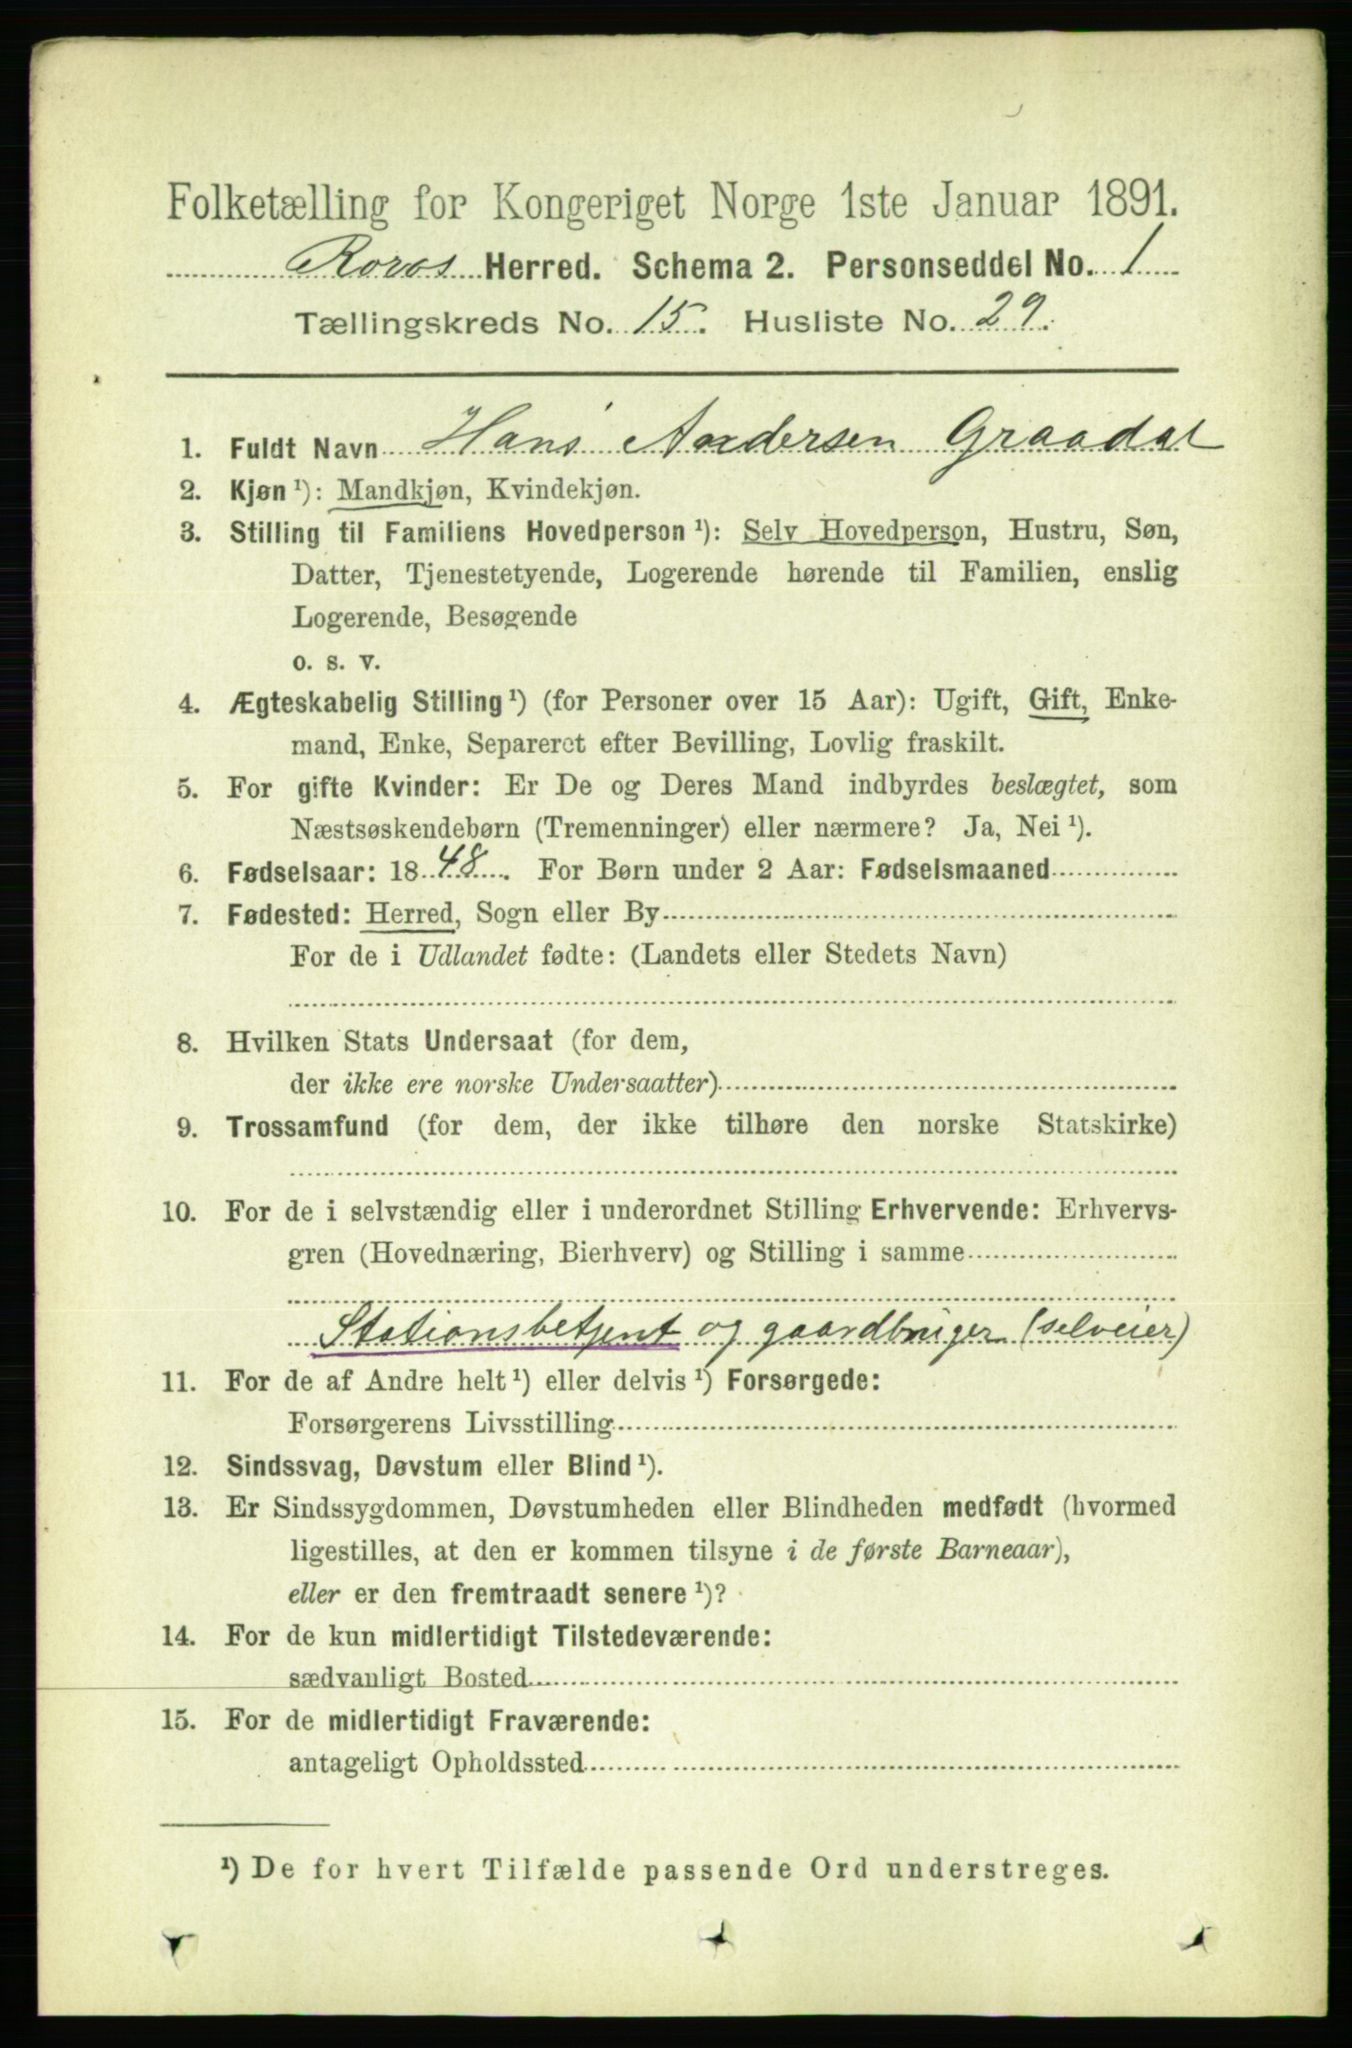 Folketælling for Kongeriget Norge 1ste Januar 1891.
Roros Herred. Schema 2. Personseddel No. 1
Tællingskreds No. 15. Husliste No. 29.
1. Fuldt Navn Hans Andersen Graadal
2. Kjøn ¹): Mandkjøn, Kvindekjøn.
3. Stilling til Familiens Hovedperson ¹): Selv Hovedperson, Hustru, Søn,
Datter, Tjenestetyende, Logerende hørende til Familien, enslig
Logerende, Besøgende
o. s. v.
4. Ægteskabelig Stilling ¹) (for Personer over 15 Aar): Ugift, Gift, Enke-
mand, Enke, Separeret efter Bevilling, Lovlig fraskilt.
5. For gifte Kvinder: Er De og Deres Mand indbyrdes beslægtet, som
Næstsøskendebørn (Tremenninger) eller nærmere? Ja, Nei ¹).
6. Fødselsaar: 1848. For Børn under 2 Aar: Fødselsmaaned
7. Fødested: Herred, Sogn eller By
For de i Udlandet fødte: (Landets eller Stedets Navn)
8. Hvilken Stats Undersaat (for dem,
der ikke ere norske Undersaatter)
9. Trossamfund (for dem, der ikke tilhøre den norske Statskirke)
10. For de i selvstændig eller i underordnet Stilling Erhvervende: Erhvervs-
gren (Hovednæring, Bierhverv) og Stilling i samme
Stationsbetjent og gaardbruger (selveier)
11. For de af Andre helt ¹) eller delvis ¹) Forsørgede:
Forsørgerens Livsstilling
12. Sindssvag, Døvstum eller Blind ¹).
13. Er Sindssygdommen, Døvstumheden eller Blindheden medfødt (hvormed
ligestilles, at den er kommen tilsyne i de første Barneaar),
eller er den fremtraadt senere ¹)?
14. For de kun midlertidigt Tilstedeværende:
sædvanligt Bosted
15. For de midlertidigt Fraværende:
antageligt Opholdssted
¹) De for hvert Tilfælde passende Ord understreges.